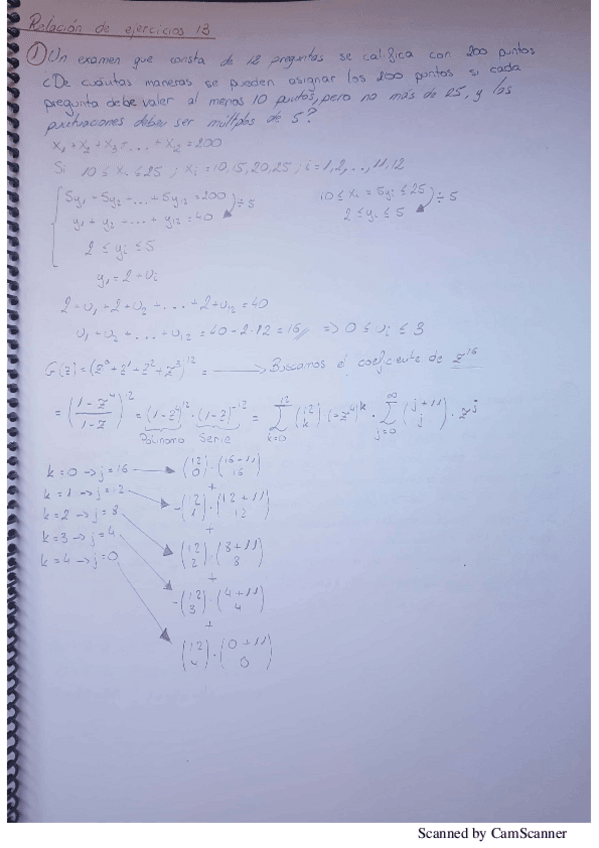 Relación de ejercicios 13
① Un examen que consta de 12 preguntas se califica con 200 puntos
¿De cuántas maneras se pueden asignar los 200 puntos si cada
pregunta debe valer al menos 10 puntos, pero no más de 25, y las
puntuaciones deben ser múltiplos de 5?
x₁ + x₂ + x₃ + ... + x₁₂ = 200
Si 10 ≤ xᵢ ≤ 25 ; xᵢ = 10, 15, 20, 25 ; i = 1, 2, .., 11, 12
5y₁ + 5y₂ + ... + 5y₁₂ = 200 ) ÷ 5 10 ≤ xᵢ = 5yᵢ ≤ 25 ) ÷ 5
y₁ + y₂ + ... + y₁₂ = 40 2 ≤ yᵢ ≤ 5
2 ≤ yᵢ ≤ 5
yᵢ = 2 + uᵢ
2 + u₁ + 2 + u₂ + ... + 2 + u₁₂ = 40
u₁ + u₂ + ... + u₁₂ = 40 - 2·12 = 16 // => 0 ≤ uᵢ ≤ 3
G(z) = (z⁰ + z¹ + z² + z³)¹² = ⟶ Buscamos el coeficiente de z¹⁶
= ((1 - z⁴)/(1 - z))¹² = (1 - z⁴)¹² · (1 - z)⁻¹² = ∑_{k=0}^{12} (12 k) (-z⁴)^k · ∑_{j=0}^{∞} (j+11 j) · z^j
Polinomio Serie
k = 0 → j = 16 ⟶ (12 0) · (16+11 16)
+
k = 1 → j = 12 ⟶ -(12 1) · (12+11 12)
+
k = 2 → j = 8 ⟶ (12 2) · (8+11 8)
+
k = 3 → j = 4 ⟶ -(12 3) · (4+11 4)
+
k = 4 → j = 0 ⟶ (12 4) · (0+11 0)
Scanned by CamScanner